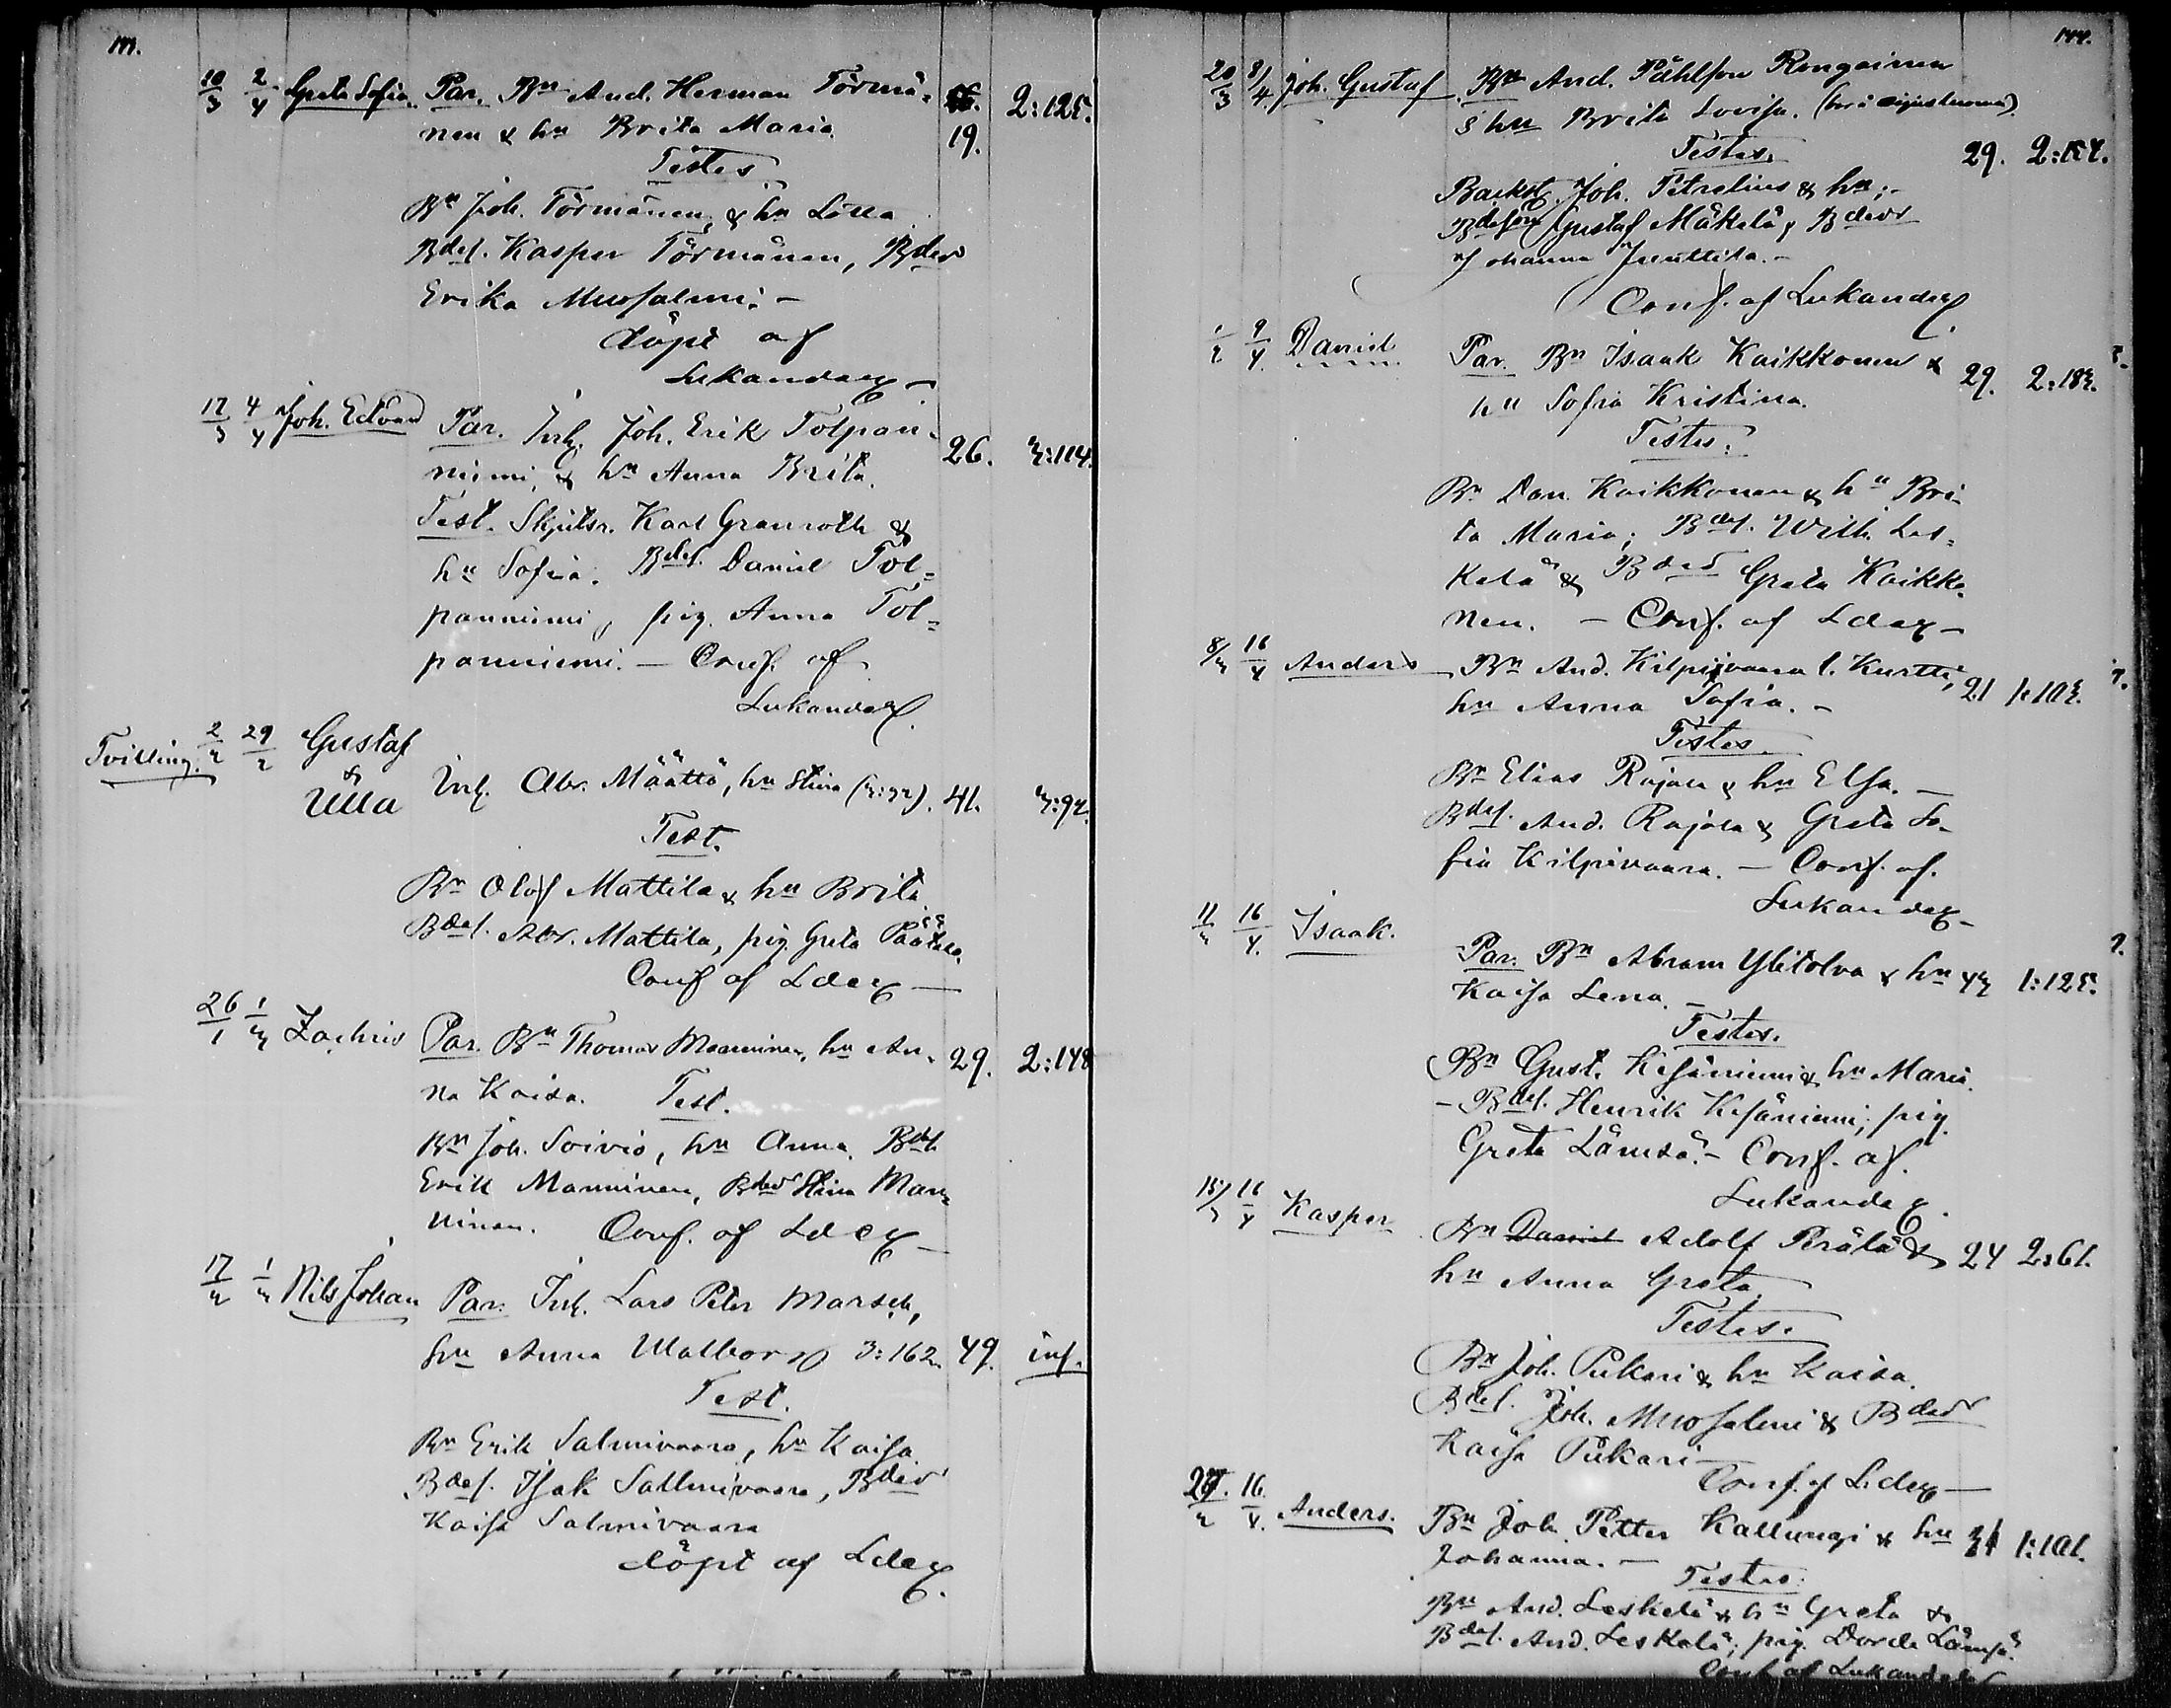 10/3 2/4 Greta Sofia. Par. Bn And. Herman Törmä- 2:125.
nen & hn Brita Maria. 19.
Testes
Bn Joh. Törmänen, & hn Lovisa
Bdes. Kasper Törmänen, Bdedr
Erika Mursalmi. -
döpt af
Lukander
17/3 4/4 Joh. Edvard Par. Inh. Joh. Erik Tolpan- 26. 3:114.
niemi, & hn Anna Brita.
Test. Skjutsr. Karl Granroth &
hn Sofia. Bdes. Daniel Tol=
panniemi, pig. Anna Tol=
panniemi. - Conf. af
Lukander.
Tvilling. 2/2 29/2 Gustaf
& Ulla Inh. Abr. Määttä, hn Stina 41. 3:92.
Test.
Bn Olof Mattila & hn Brita
Bdes. Abr. Mattila, pig. Greta
Conf af Lder
26/1 1/3 Zachris Par. Bn Thomas Manninen, hn An- 29. 2:148
na Kaisa. Test.
Bn Joh. Soivio, hn Anna. Bdes.
Erik Manninen, Bdedr Stina Man=
ninen. Conf. af Lder
17/2 1/3 Nils Johan Par. Inh. Lars Peter Marsch,
hn Anna Walborg 3:162. 49. inf.
Test.
Bn Erik Salmivaara, hn Kaisa
Bdes. Isak Sallmivaara, Bdedr
Kaisa Salmivaara
döpt af Lder.
144.
20/3 8/4 Joh. Gustaf. Bn And. Påhlsson Rongainen
& hn Brita Lovisa.
Testes. 29. 2:154.
Joh. Petrelius & hn;-
Bdeson Gustaf Mäkelä, Bdedr
Johanna Juuttila. -
Conf. af Lukander
1/2 9/4 Daniel Par. Bn Isaak Kaikkonen & 29. 2:183.
hn Sofia Kristina.
Testes.
Bn Dan. Kaikkonen & hn Bri-
ta Maria; Bdes. Wilh. Les=
kelä & Bded Greta Kaikko-
nen. - Conf. af Lder -
8/3 16/4 Anders Bn And. Kilpivaara l. Kurtti, 21 1:103.
hn Anna Sofia. -
Testes.
Bn Elias Rajala & hn Elsa. -
Bdes. And. Rajala & Greta So-
fia Kilpivaara. - Conf. af.
Lukander -
11/3 16/4 Isaak. Par. Bn Abram Ylitolva & hn 43 1:125.
Kaisa Lena. -
Testes.
Bn Gust. Kesäniemi & hn Maria.
- Bdes. Henrik Kesäniemi, pig.
Greta Lämsä. - Conf. af.
Lukander.
15/3 16/4 Kasper Bn Daniel Adolf Perälä & 24 2:61.
hn Anna Greta.
Testes.
Bn Joh. Pukari & hn Kaisa.
Bdes. Joh. Mursalmi & Bdedr
Kaisa Pukari -
Conf. af Lder -
16/4 Anders. Bn Joh. Petter Kallungi & hn 1:101.
Johanna. -
Testes.
Bn And. Leskelä & hn Greta &
Bdes. And. Leskelä; pig. Dorde Lämsä.
Conf af Lukander